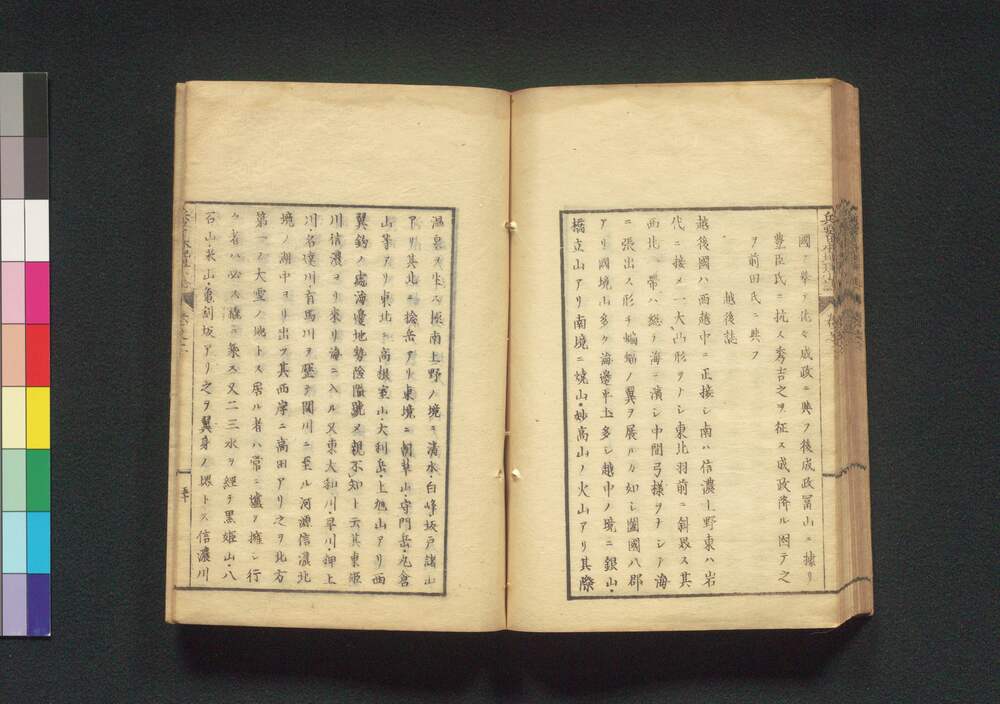 國ヲ擧テ佐々成政ニ與フ後成政冨山ニ據リ
豊臣氏ニ抗ス秀吉之ヲ征ス成政濟ル困テ之
ヲ前田氏ニ與フ
越後誌
越後國ハ西越中ニ正接シ南ハ信濃上野東ハ岩
代ニ接メ一大凸形ヲナシ東北羽前ニ斜殺ス其
西北一帶ハ總テ海ニ濱シ中間弓様ヲナシテ海
ニ張出ス形チ蝙蝠ノ翼ヲ展ルカ如シ闔國八郡
アリ國境山多ク海邊平土多シ越中ノ境ニ銀山・
橋立山アリ南境ニ焼山・妙高山ノ火山アリ其際
温泉ヲ生ス極南上野ノ境ニ清水白峰坂戸諸山
アリ其北ニ捴岳アリ東境ニ朝草山・守門岳・丸倉
山等アリ東北ニ高根室山・大利岳・上旭山アリ西
翼鈎ノ處海邊地勢險隘號メ親不知ト云其東姫
川信濃ヨリ來リ海ニ入ル又東大和川・早川・押上
川・名達川・有馬川ヲ歴テ関川ニ至ル河源信濃北
境ノ湖中ヨリ出ツ其西岸ニ高田アリ之ヲ北方
第一ノ大雪ノ地トス居ル者ハ常ニ爐ヲ擁シ行
ク者ハ必ス橇ニ乗ス又二三水ヲ經テ黒姫山・八
石山・米山・亀割坂アリ之ヲ翼身ノ堺トス信濃川